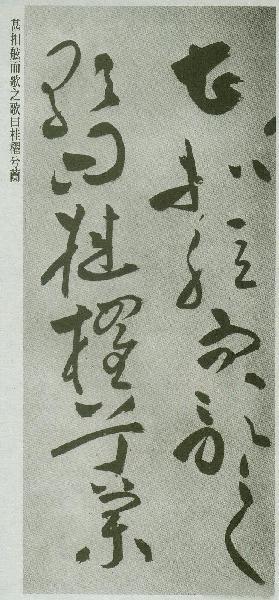 甚扣舷而歌之
歌曰桂櫂兮蘭
甚扣舷而歌之歌曰桂櫂兮蘭